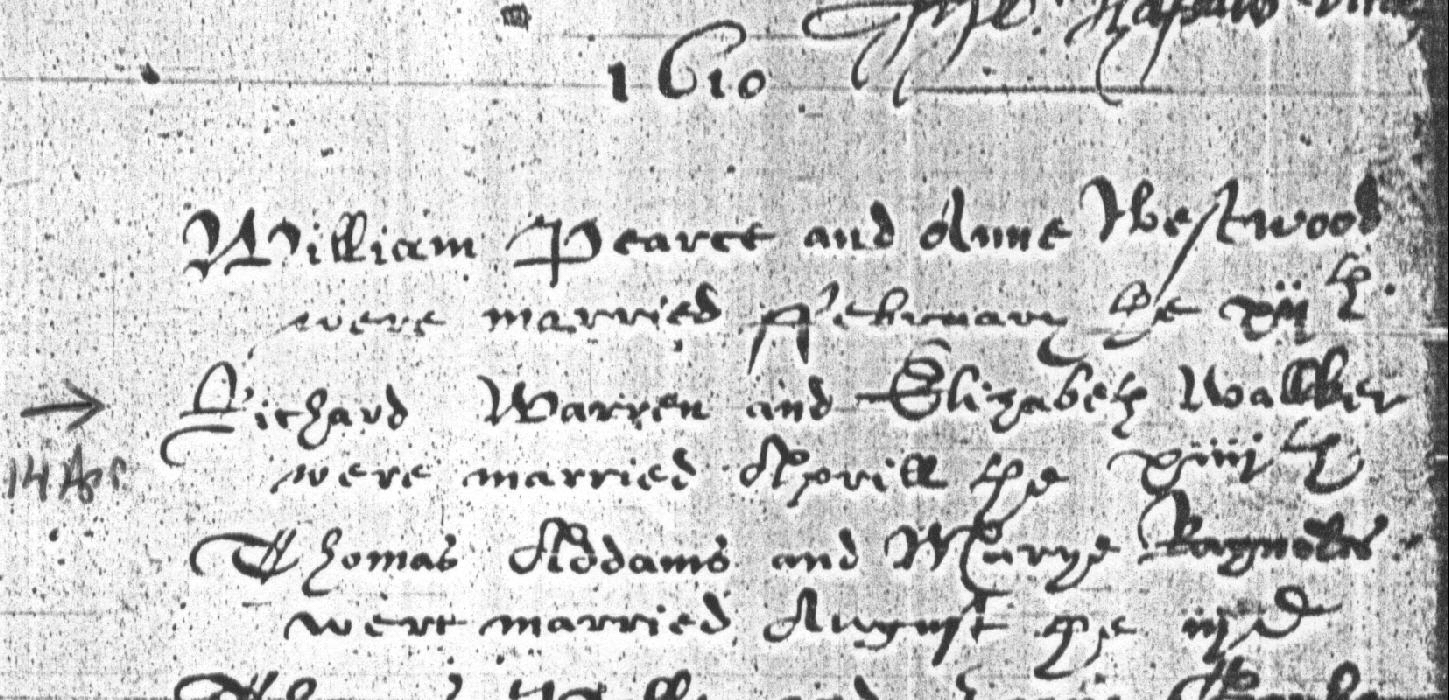 1610
William Pearce and Anne Westwood
were married February the xij th.
Richard Warren and Elizabeth Walker
→ 14 Apr
were married Aprill the xiiij th
Thomas Addams and Marye Raynolds
were married August the iij d